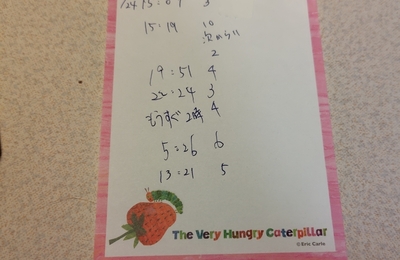 15:19 10
2
19:51 4
22:24 3
もうすぐ2時 4
5:26 6
13:21 5
The Very Hungry Caterpillar
©Eric Carle